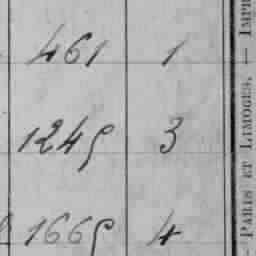 461 1
1245 3
1665 4
— PARIS ET LIMOGES. — IMPR